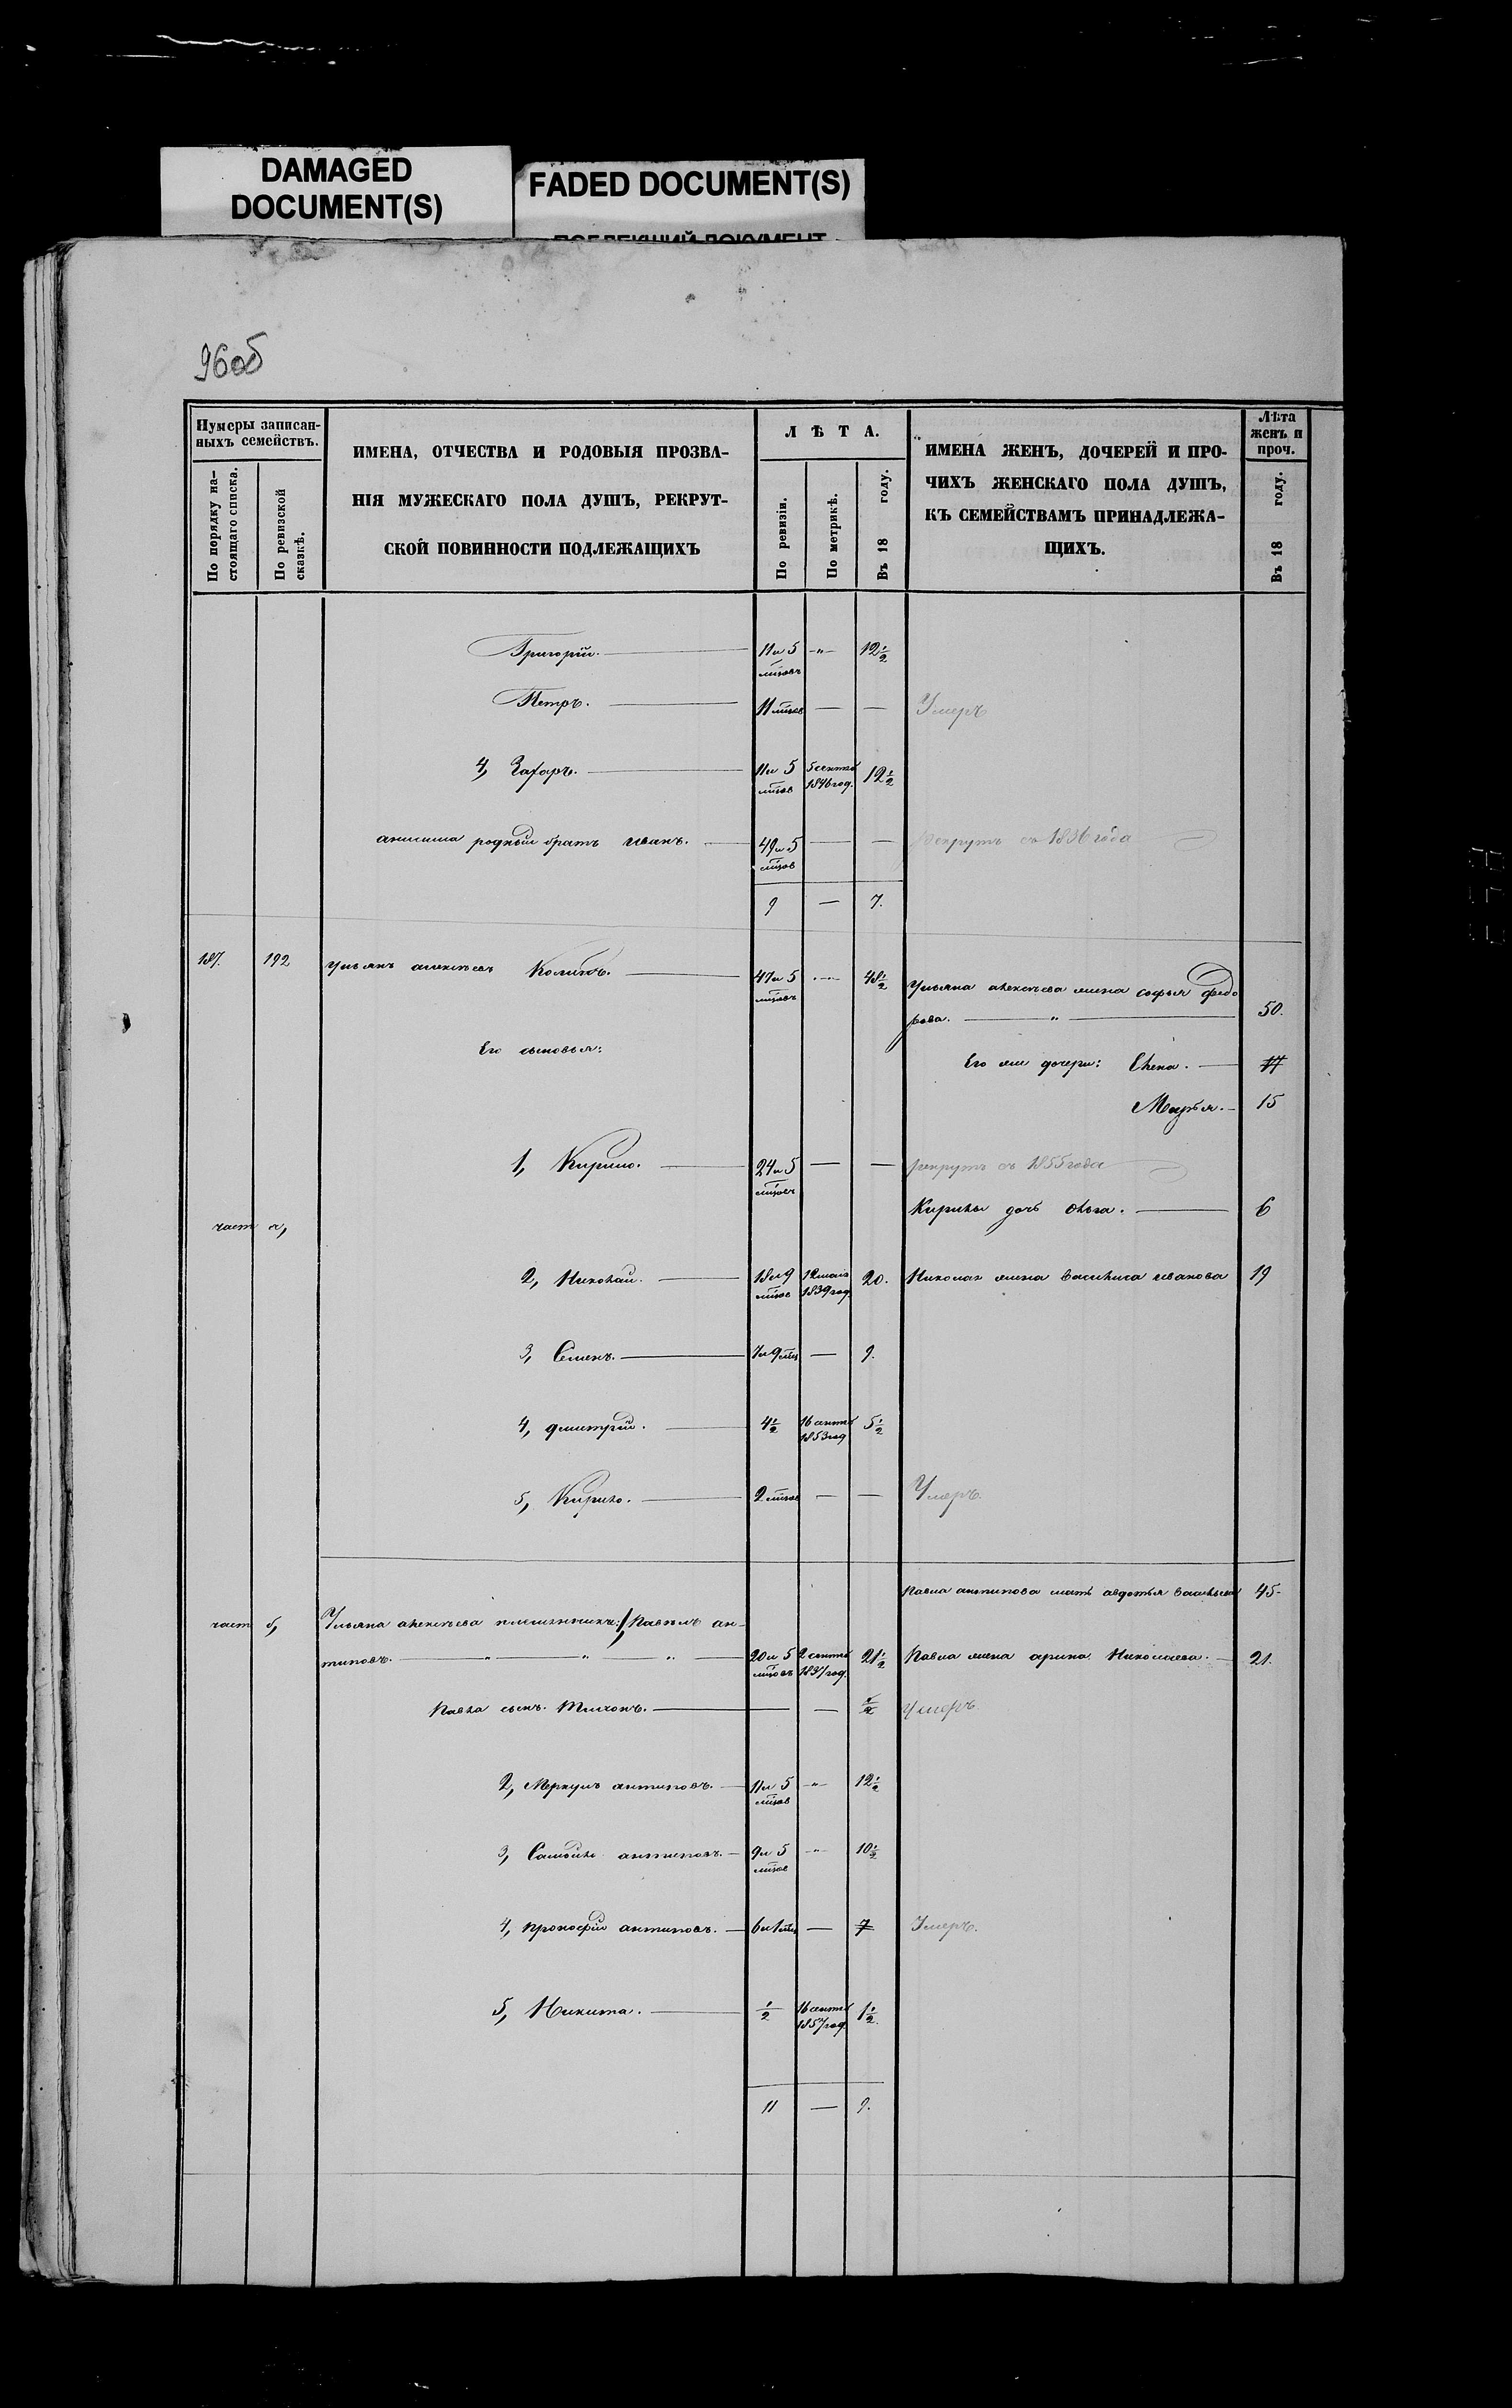 DAMAGED
DOCUMENT(S)
FADED DOCUMENT(S)
960б
Нумеры записан-
ныхъ семействъ.
По порядку на-
стоящаго списка.
По ревизской
сказкѣ.
ИМЕНА, ОТЧЕСТВА И РОДОВЫЯ ПРОЗВА-
НІЯ МУЖЕСКАГО ПОЛА ДУШЪ, РЕКРУТ-
СКОЙ ПОВИННОСТИ ПОДЛЕЖАЩИХЪ
Л Ѣ Т А.
По ревизіи.
По метрикѣ.
Въ 18 году.
ИМЕНА ЖЕНЪ, ДОЧЕРЕЙ И ПРО-
ЧИХЪ ЖЕНСКАГО ПОЛА ДУШЪ,
КЪ СЕМЕЙСТВАМЪ ПРИНАДЛЕЖА-
ЩИХЪ.
Лѣта
женъ и
проч.
Въ 18 году.
Григорій. 11 и 5 мцовъ — " — 12 1/2
Петръ. 11 мцов — — Умеръ
4, Захаръ. 11 и 5 мцов 5 сентяб 1846 год. 12 1/2
анисима родный братъ иванъ. 49 и 5 мцов — — рекрутъ съ 1836 года
9 — 7.
187. 192 Ульянъ алексѣевъ 47 и 5 мцовъ 48 1/2 Ульяна алексѣева жена софья федо
рова. " 50.
Его сыновья:
Его же дочери: Елена. 17
Марья. 15
1, Кирило. 24 и 5 мцовъ — — рекрутъ съ 1855 года
Кирилы дочь ольга. 6
част а,
2, Николай. 18 и 9 мцов 12 маія 1839 год. 20. Николая жена василиса иванова 19
3, Семенъ. 7 и 9 мцъ — 9.
4, дмитрій. 4 1/2 16 сентяб 1853 год 5 1/2
5, Кирило. 2 мцов — — Умеръ.
Павла антипова мать авдотья васильева 45.
част б, Ульяна алексѣева племянники: 1, Павелъ ан-
типовъ. " " " 20 и 5 мцовъ 2 сентяб 1837 год. 21 1/2 Павла жена арина Николаева. 21.
Павла сынъ. Тихонъ. — — 1/2 Умеръ.
2, Меркулъ антиповъ. 11 и 5 мцов — " — 12 1/2
3, Самойло антиповъ. 9 и 5 мцов — " — 10 1/2
4, прокофій антиповъ. 6 и 1 мцъ — 7 Умеръ.
5, Никита. 1/2 16 сентяб 1857 год. 1 1/2.
11 — 9.